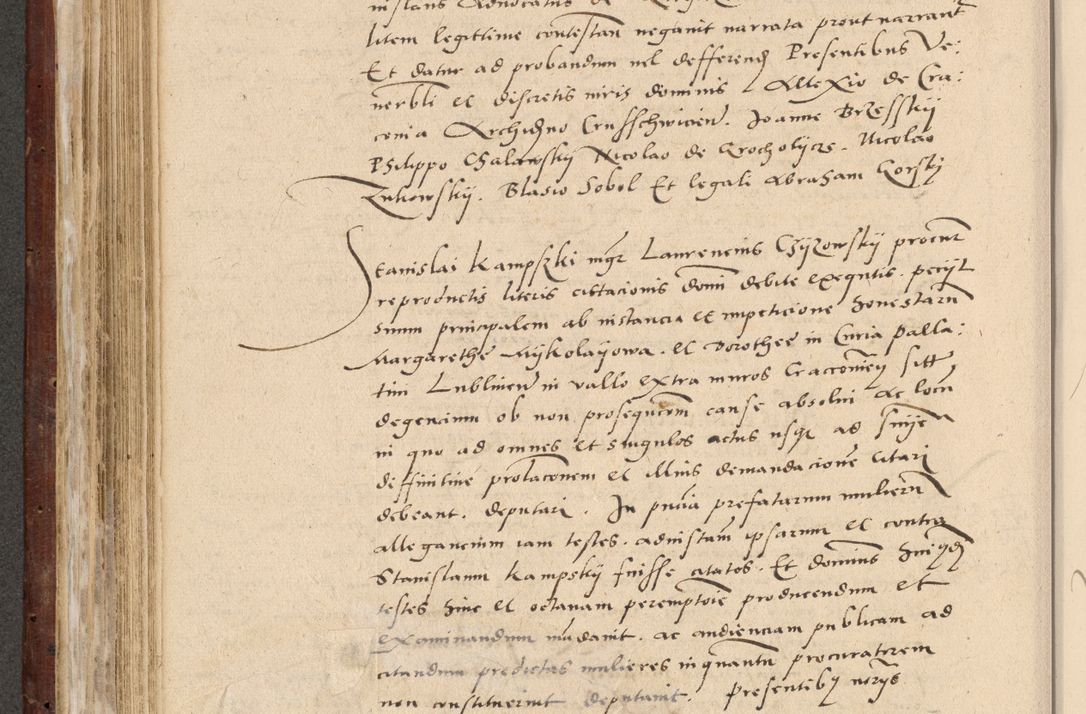 instans Advocatus de
litem legittime contestan negavit narrata prout narrant
Et datur ad probandum vel defferend Presentibus Ve:
nerbli et discretis viris dominis Allexio de Cra:
covia Archidno Crusschwicien. Joanne Brzesskij
Philippo Chalawskij Nicolao de Grocholycze. Nicolao
Zukowskij. Blasio Sobol Et legali Abraham Gorskj
Stanislai Kampszki mgr Laurencius Czijzowskij procur
reproductis literis citacionis domi debite exequtis. peciit
suum principalem ab instancia et impeticione honestarum
Margarethe Mykolayowa. et Dorothee in Curia palla:
tini Lublinen in vallo extra muros Cracovien sitt
degencium ob non prosequcom cause absolvi ac locu
in quo ad omnes et singulos actus usqz ad snije
diffinitive prolaconem et illius demandacione citari
debeant. deputari. In pncia prefatarum mulieru
allegancium iam testes. ad instam ipsarum et contra
Stanislaum Kampskij fuisse citatos. Et dominus
testes hinc et octavam peremptorie producendum et
examinandum mandavit. ac audienciam publicam ad
citandum predictas mulieres in quantu procuratorem
non constituerint deputavit. Presentiby